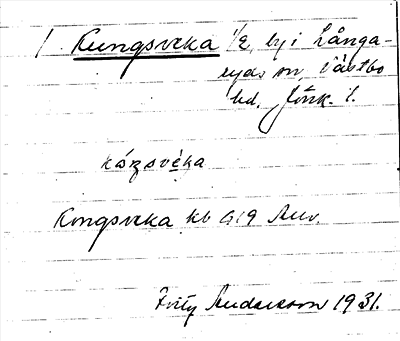 1. Kungsveka 1/2, by i Långa-
ryds sn, Västbo
hd. Jönk. l.
kóŋsvéka
Kongsveka kb G19 Auv.
Fritz Andersson 1931.